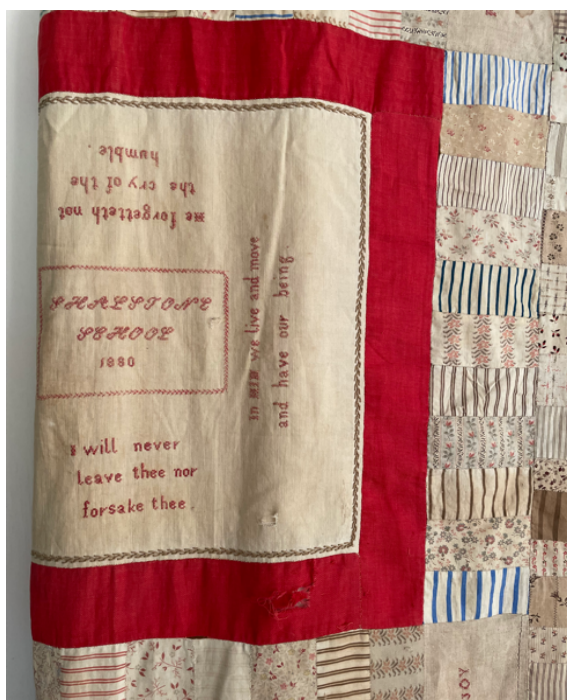 He forgetteth not
the cry of the
humble.
SHALSTONE
SCHOOL
1880
in HIM we live and move
and have our being.
I will never
leave thee nor
forsake thee.
JOY